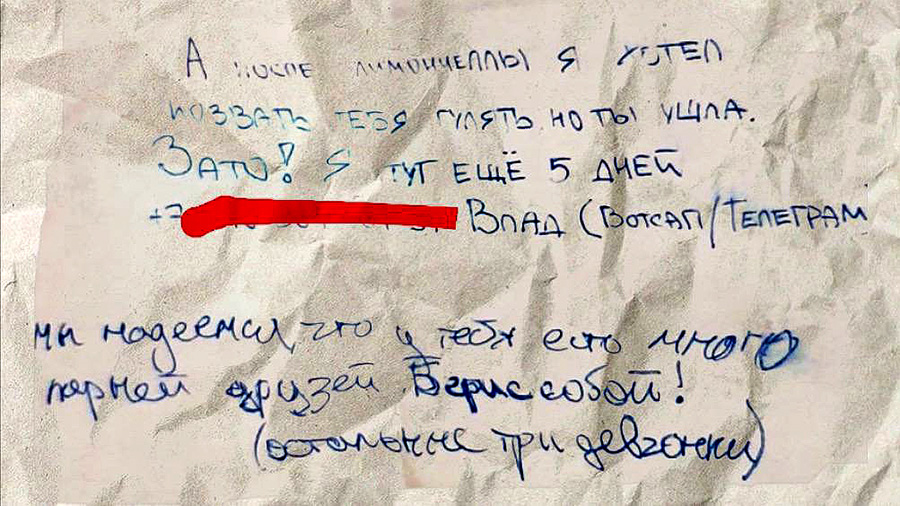 А после лимончеллы я хотел
позвать тебя гулять, но ты ушла.
Зато! Я тут ещё 5 дней
+7 Влад (Вотсап/Телеграм
мы надеемся, что у тебя есть много
парней друзей Бери с собой!
(остальные три девчонки)